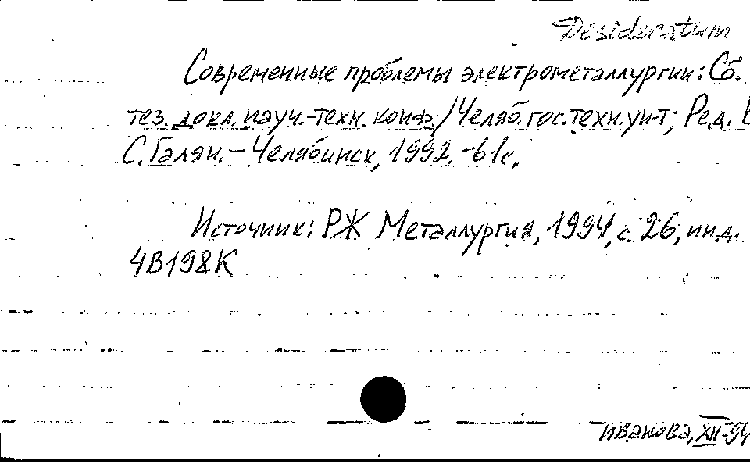 Desideratum
Современные проблемы электрометаллургии: Сб.
тез. докл. науч.-техн. конф. / Челяб. гос. техн. ун-т; Ред.
С. Галян. - Челябинск, 1992. - 61с.
Источник: РЖ Металлургия, 1994, с. 26, инд.
4В198К
Иванова, XII-94